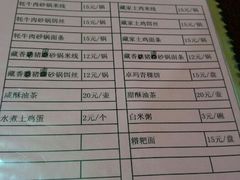 牦牛肉砂锅米线 15元/锅 藏家土鸡米线 15元/锅
牦牛肉砂锅饵丝 15元/锅 藏家土鸡饵丝 15元/锅
牦牛肉砂锅面条 15元/锅 藏家土鸡面条 15元/锅
藏香猪砂锅米线 12元/锅 藏香猪砂锅面条 12元/锅
藏香猪砂锅饵丝 12元/锅 卓玛青稞饼 15元/盘
咸酥油茶 20元/壶 甜酥油茶 20元/壶
水煮土鸡蛋 2元/个 白米粥 3元/碗
糌粑面 15元/盘